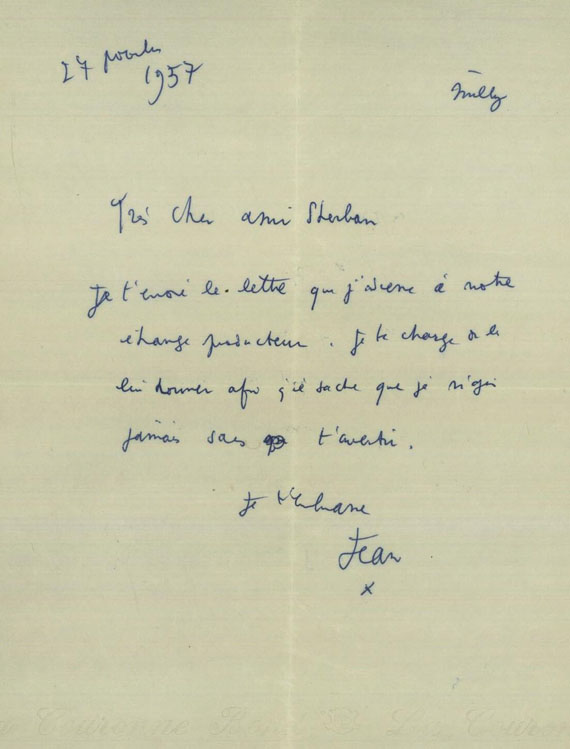 27
1957
Milly
Très cher ami Sterban
Je t'envoie la lettre que j'adresse à notre
étrange producteur. Je te charge de la
lui donner afin qu'il sache que je n'agis
jamais sans t'avertir.
Je t'embrasse
Jean
x
Couronne